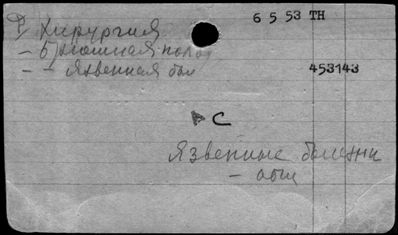 I Хирургия
6 5 53 TH
- Брюшная полос
- - Язвенная бол
453143
С
Язвенные болезни
- общ